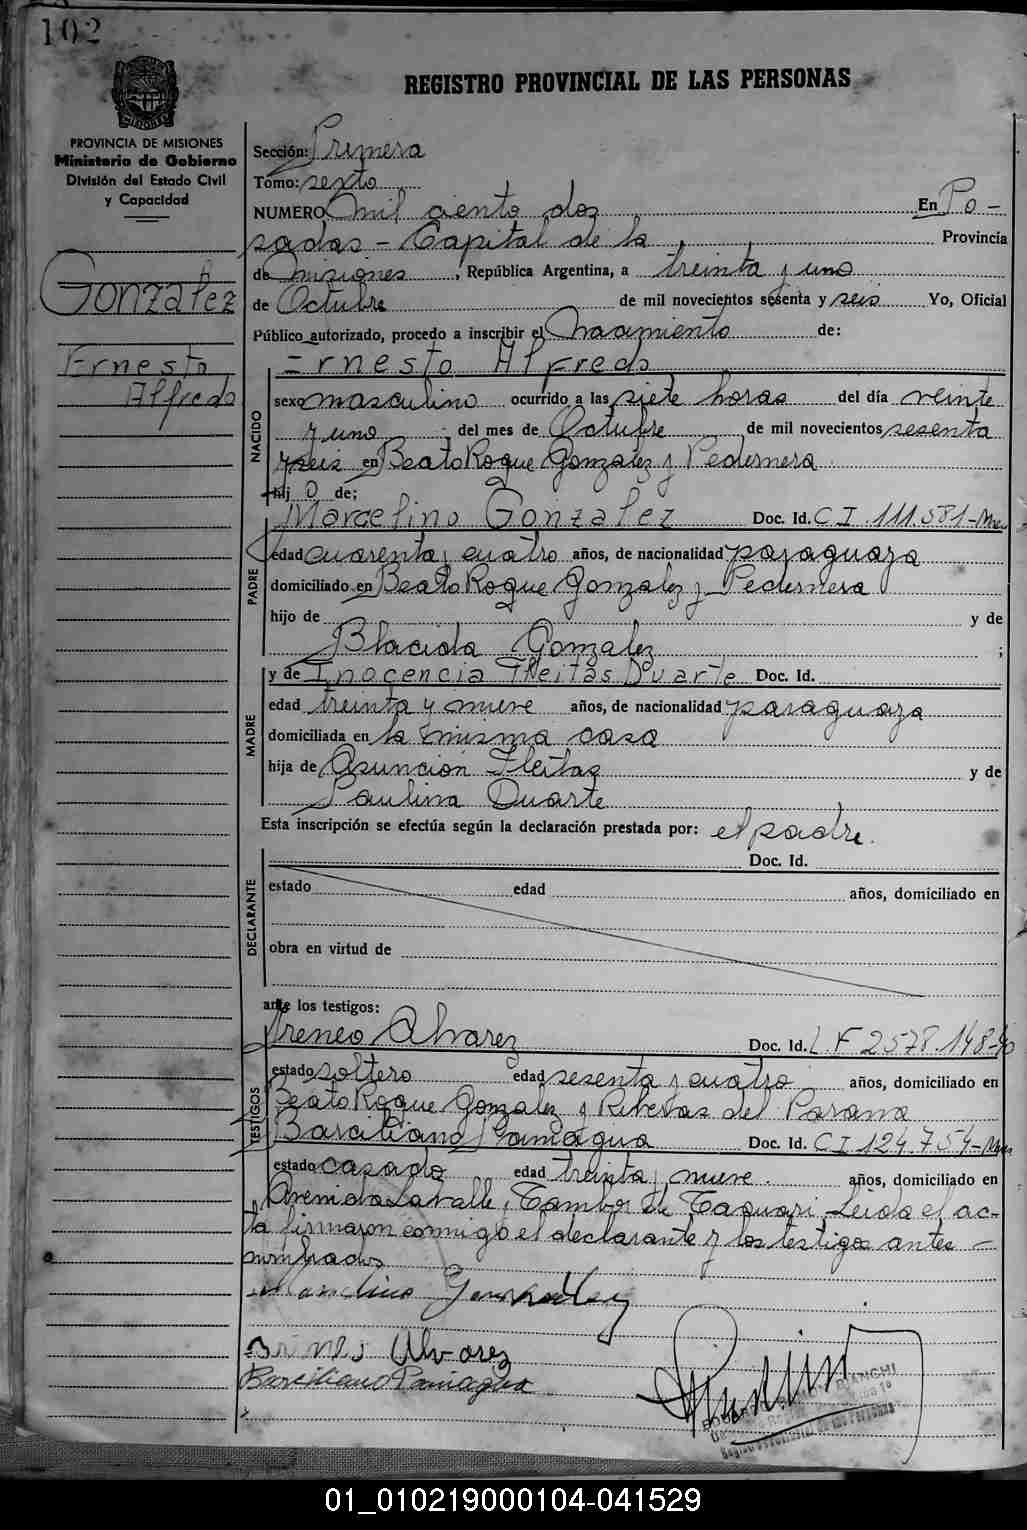 102
REGISTRO PROVINCIAL DE LAS PERSONAS
PROVINCIA DE MISIONES
Ministerio de Gobierno
División del Estado Civil
y Capacidad
Gonzalez
Ernesto
Alfredo
Sección: Primera
Tomo: sexto
NUMERO mil ciento dos En Po-
sadas - Capital de la Provincia
de misiones, República Argentina, a treinta y uno
de Octubre de mil novecientos sesenta y seis Yo, Oficial
Público autorizado, procedo a inscribir el nacimiento de:
Ernesto Alfredo
NACIDO
sexo masculino ocurrido a las siete horas del día veinte
y uno del mes de Octubre de mil novecientos sesenta
y seis en Beato Roque Gonzalez y Pedernera
hij o de;
PADRE
Marcelino Gonzalez Doc. Id. C I 111.581-
edad cuarenta y cuatro años, de nacionalidad paraguaya
domiciliado en Beato Roque Gonzalez y Pedernera
hijo de y de
Blacida Gonzalez ;
MADRE
y de Inocencia Fleitas Duarte Doc. Id.
edad treinta y nueve años, de nacionalidad paraguaya
domiciliada en la misma casa
hija de Asuncion Fleitas y de
Paulina Duarte
Esta inscripción se efectúa según la declaración prestada por: el padre.
DECLARANTE
Doc. Id.
estado edad años, domiciliado en
obra en virtud de
ante los testigos:
TESTIGOS
Ireneo Alvarez Doc. Id. L F 2578.148-
estado soltero edad sesenta y cuatro años, domiciliado en
Beato Roque Gonzalez y Riberas del Parana
Barciliano Paniagua Doc. Id. C I 124.754-
estado casado edad treinta y nueve. años, domiciliado en
Avenida Lavalle, Tambor de Tacuari. Leida el ac-
ta firmaron conmigo el declarante y los testigos antes -
nombrados
Marcelino Gonzalez
Ireneo Alvarez
Barciliano Paniagua
BIANCHI
Registro Provincial de las Personas
01_010219000104-041529